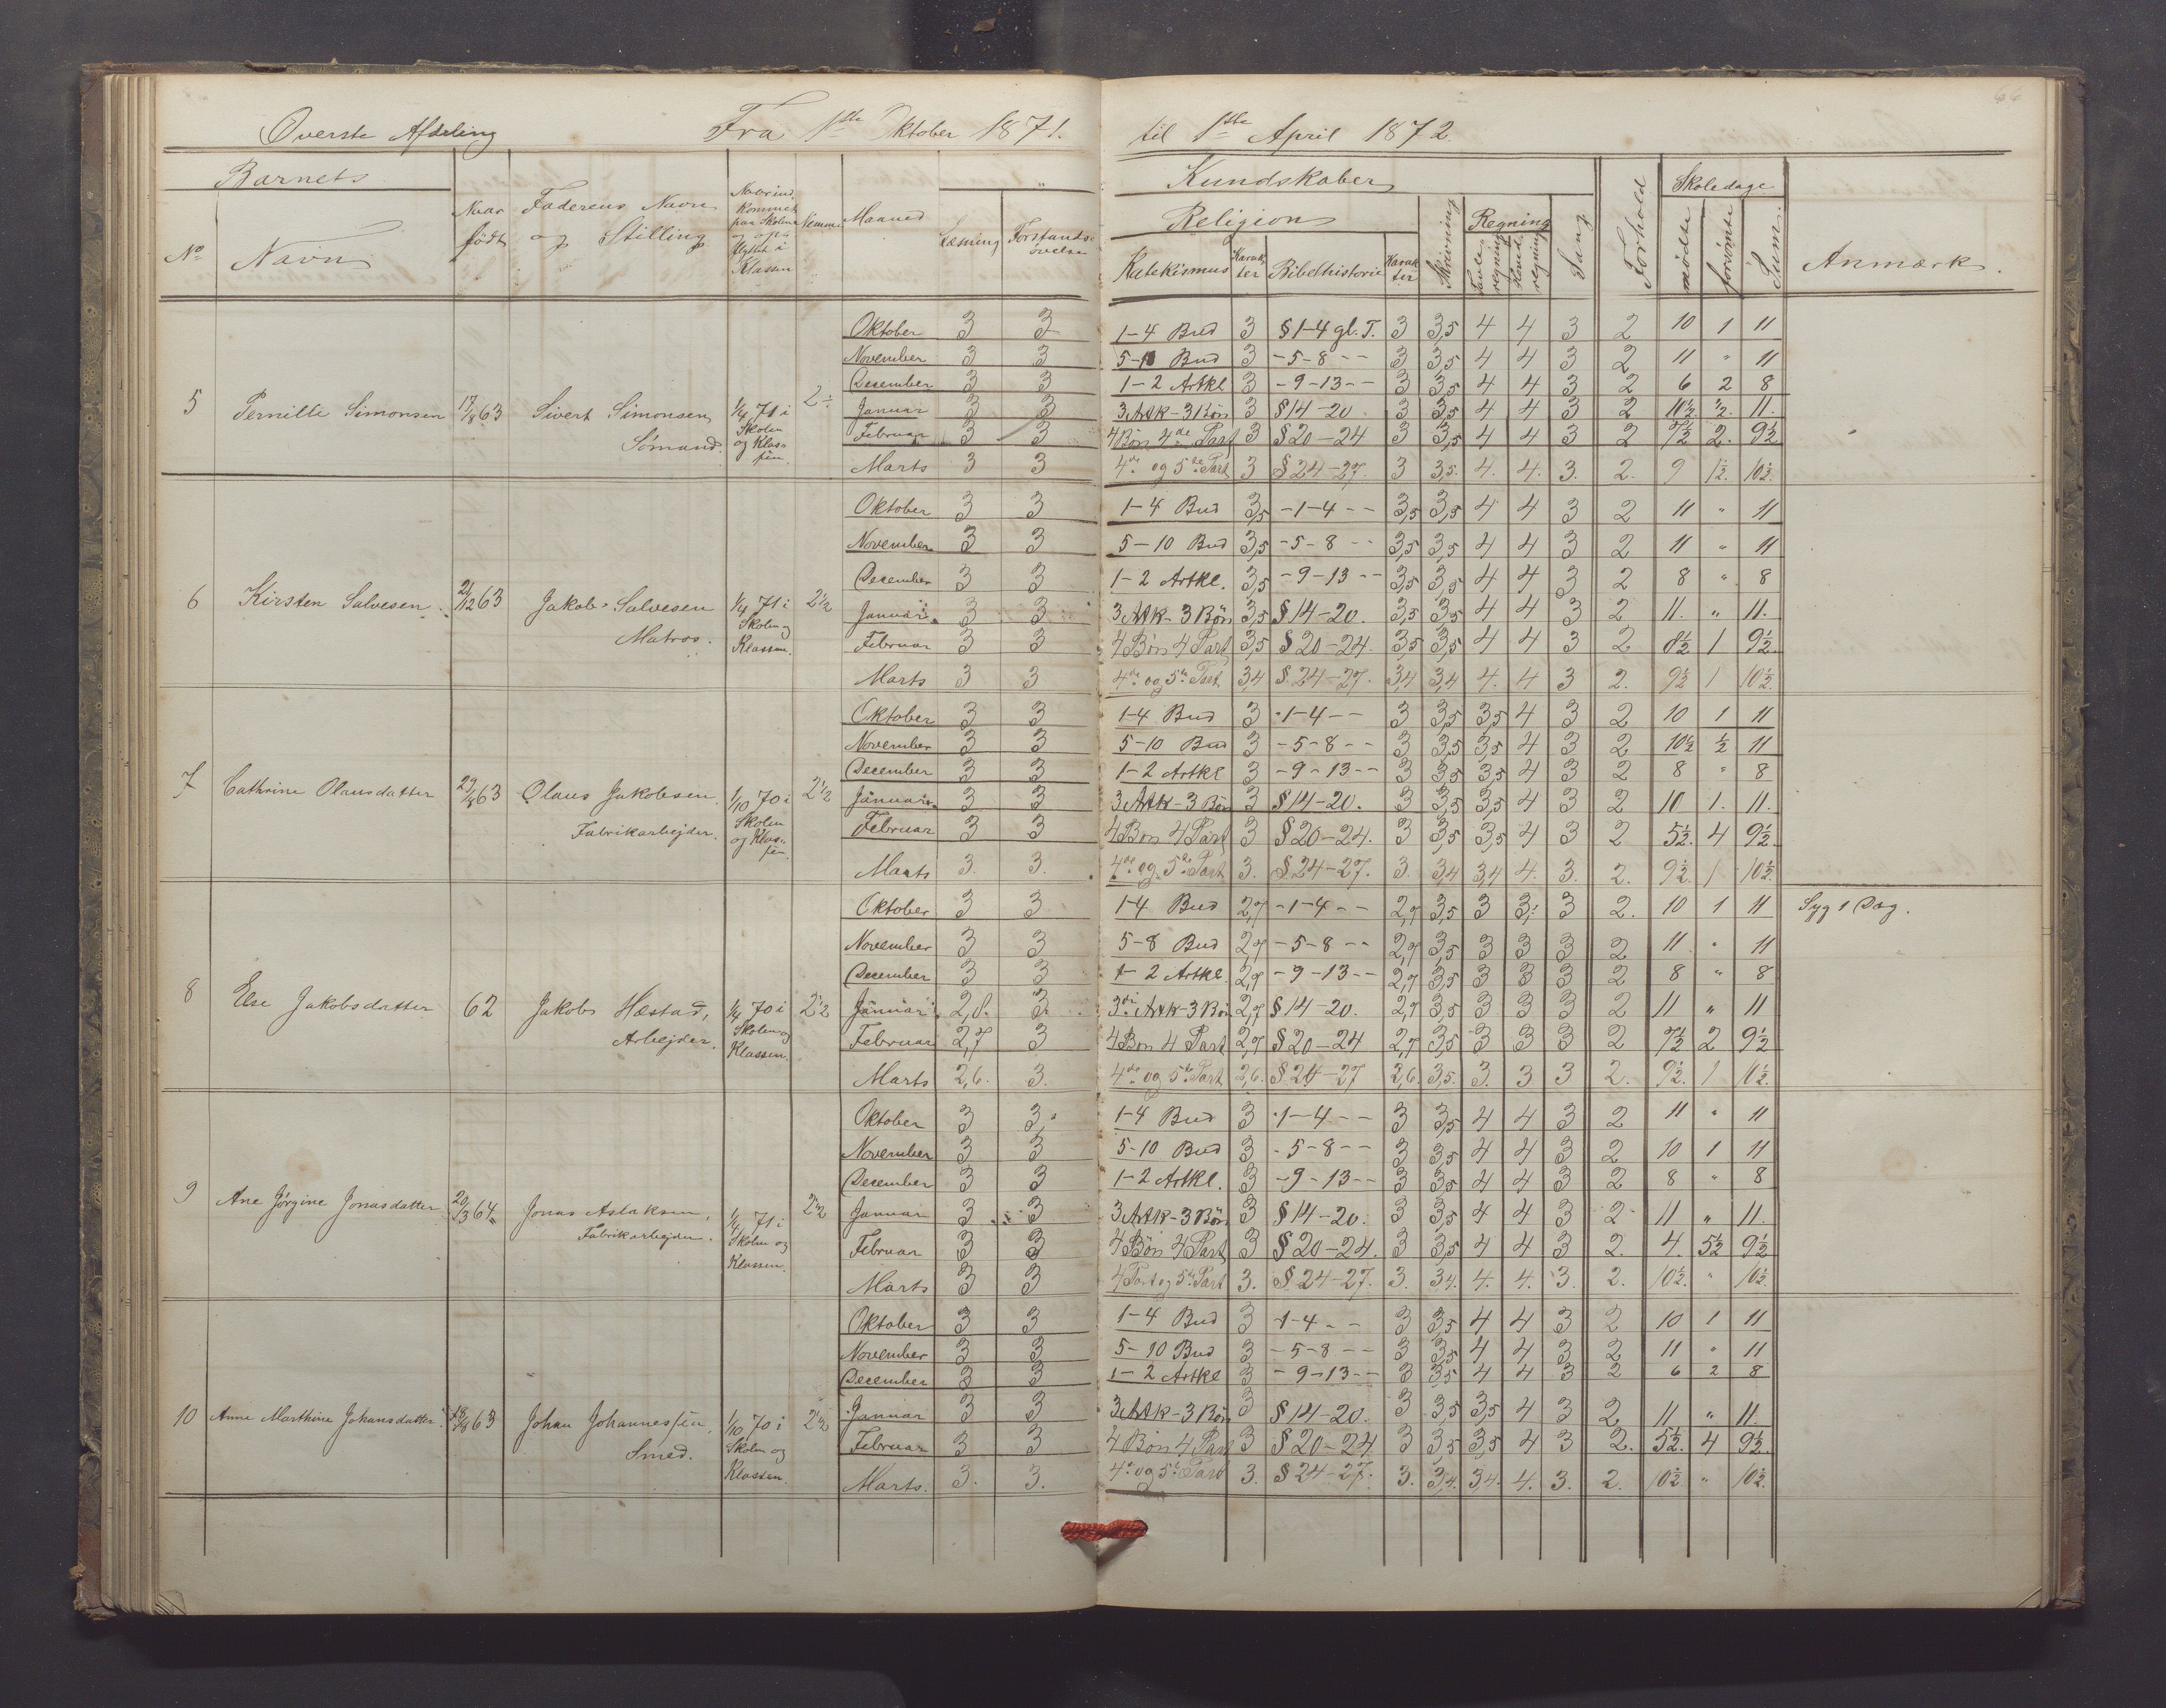 66
Overste Afdeling Fra 1ste Oktober 1871. til 1ste April 1872.
Barnets Naar født Faderens Navn og Stilling Nemme Maaned Læsning Forstandsøvelse
No Navn
Kundskaber Forhold Skoledage Anmærk.
Religion Skrivning Regning Sang mødte forsømte Sum.
Katekismus Karakter Bibelhistorie Karakter Tavleregning Hovedregning
5 Pernille Simonsen 17/8 63 Sivert Simonsen Sømand. 1/4 71 i Skolen og Klassen. 2÷
Oktober 3 3 1-4 Bud 3 § 1-4 gl. T. 3 3,5 4 4 3 2 10 1 11
November 3 3 5-10 Bud 3 -5-8 -- 3 3,5 4 4 3 2 11 " 11
December 3 3 1-2 Artkl 3 -9-13-- 3 3,5 4 4 3 2 6 2 8
Januar 3 3 3 Artk-3 Bön 3 § 14-20 3 3,5 4 4 3 2 10½ ½ 11.
Februar 3 3 4 Bön 4de Part 3 § 20-24 3 3,5 4 4 3 2 7½ 2. 9½
Marts 3 3 4de og 5te Part 3 § 24-27. 3 3,5. 4. 4. 3. 2. 9 1½. 10½.
6 Kirsten Salvesen 21/12 63 Jakob Salvesen Matros. 1/4 71 i Skolen og Klassen. 2½
Oktober 3 3 1-4 Bud 3,5 -1-4 -- 3,5 3,5 4 4 3 2 11 " 11
November 3 3 5-10 Bud 3,5 -5-8 -- 3,5 3,5 4 4 3 2 11 " 11
December 3 3 1-2 Artkl. 3,5 -9-13 -- 3,5 3,5 4 4 3 2 8 " 8
Januar 3 3 3 Artk-3 Bön 3,5 § 14-20. 3,5 3,5 4 4 3 2 11. " 11.
Februar 3 3 4 Bön 4 Part 3,5 § 20-24. 3,5 3,5 4 4 3 2 8½ 1 9½
Marts 3 3 4de og 5te Part 3,4 § 24-27. 3,4 3,4 4. 4 3 2. 9½ 1 10½.
7 Cathrine Olausdatter 29/8 63 Olaus Jakobsen. Fabrikarbejder. 1/10 70 i Skolen og Klassen. 2½
Oktober 3 3 1-4 Bud 3 -1-4 -- 3 3,5 3,5 4 3 2 10 1 11
November 3 3 5-10 Bud 3 -5-8 -- 3 3,5 3,5 4 3 2 10½ ½ 11
December 3 3 1-2 Artkl 3 -9-13-- 3 3,5 3,5 4 3 2 8 " 8
Januar 3 3 3 Artk-3 Bön 3 § 14-20. 3 3,5 3,5 4 3 2 10 1. 11.
Februar 3 3 4 Bön 4 Part 3 § 20-24. 3 3,5 3,5 4 3 2 5½ 4 9½
Marts 3. 3. 4de og 5te Part 3. § 24-27. 3. 3,4 3,4 4. 3. 2. 9½. 1 10½
8 Else Jakobsdatter 62 Jakob Hæstad, Arbejder. 1/4 70 i Skolen og Klassen. 2½
Oktober 3 3 1-4 Bud 2,7 -1-4 -- 2,7 3,5 3 3 3 2. 10 1 11 Syg 1 Dag.
November 3 3 5-8 Bud 2,7 -5-8 -- 2,7 3,5 3 3 3 2 11 " 11
December 3 3 1-2 Artkl. 2,7 -9-13-- 2,7 3,5 3 3 3 2 8 " 8
Januar 2,8. 3. 3di Artk-3 Bön 2,7 § 14-20. 2,7 3,5 3 3 3 2 11 " 11
Februar 2,7 3 4 Bön 4 Part 2,7 § 20-24 2,7 3,5 3 3 3 2 7½ 2 9½
Marts 2,6. 3. 4de og 5te Part 2,6. § 24-27 2,6. 3,5. 3. 3 3 2. 9½. 1 10½.
9 Ane Jørgine Jonasdatter 20/3 64 Jonas Aslaksen, Fabrikarbejder. 1/4 71 i Skolen og Klassen. 2½
Oktober 3 3 1-4 Bud 3 -1-4 -- 3 3,5 4 4 3 2 11 " 11
November 3 3 5-10 Bud 3 -5-8 -- 3 3,5 4 4 3 2 10 1 11
December 3 3 1-2 Artkl. 3 -9-13-- 3 3,5 4 4 3 2 8 " 8
Januar 3 3 3 Artk-3 Bön 3 § 14-20. 3 3,5 4 4 3 2 11 " 11.
Februar 3 3 4 Bön 4 Part 3 § 20-24. 3 3,5 4 4 3 2. 4. 5½ 9½
Marts 3 3 4 Part og 5te Part 3. § 24-27. 3. 3,4. 4. 4. 3. 2. 10½. " 10½.
10 Anne Marthine Johansdatter. 18/8 63 Johan Johannessen, Smed. 1/10 70 i Skolen og Klassen. 2½
Oktober 3 3 1-4 Bud 3 -1-4 -- 3 3,5 4 4 3 2 10 1 11
November 3 3 5-10 Bud 3 -5-8 -- 3 3,5 4 4 3 2 11 " 11
December 3 3 1-2 Artkl 3 -9-13-- 3 3,5 4 4 3 2 6 2 8
Januar 3 3 3 Artk-3 Bön 3 § 14-20. 3 3,5 3,5 4 3 2 11 " 11.
Februar 3 3 4 Bön 4 Part 3 § 20-24 3 3,5 3,5 4 3 2. 5½. 4 9½.
Marts. 3. 3. 4de og 5te Part 3. § 24-27. 3. 3,4. 3,4. 4. 3. 2. 10½ " 10½.